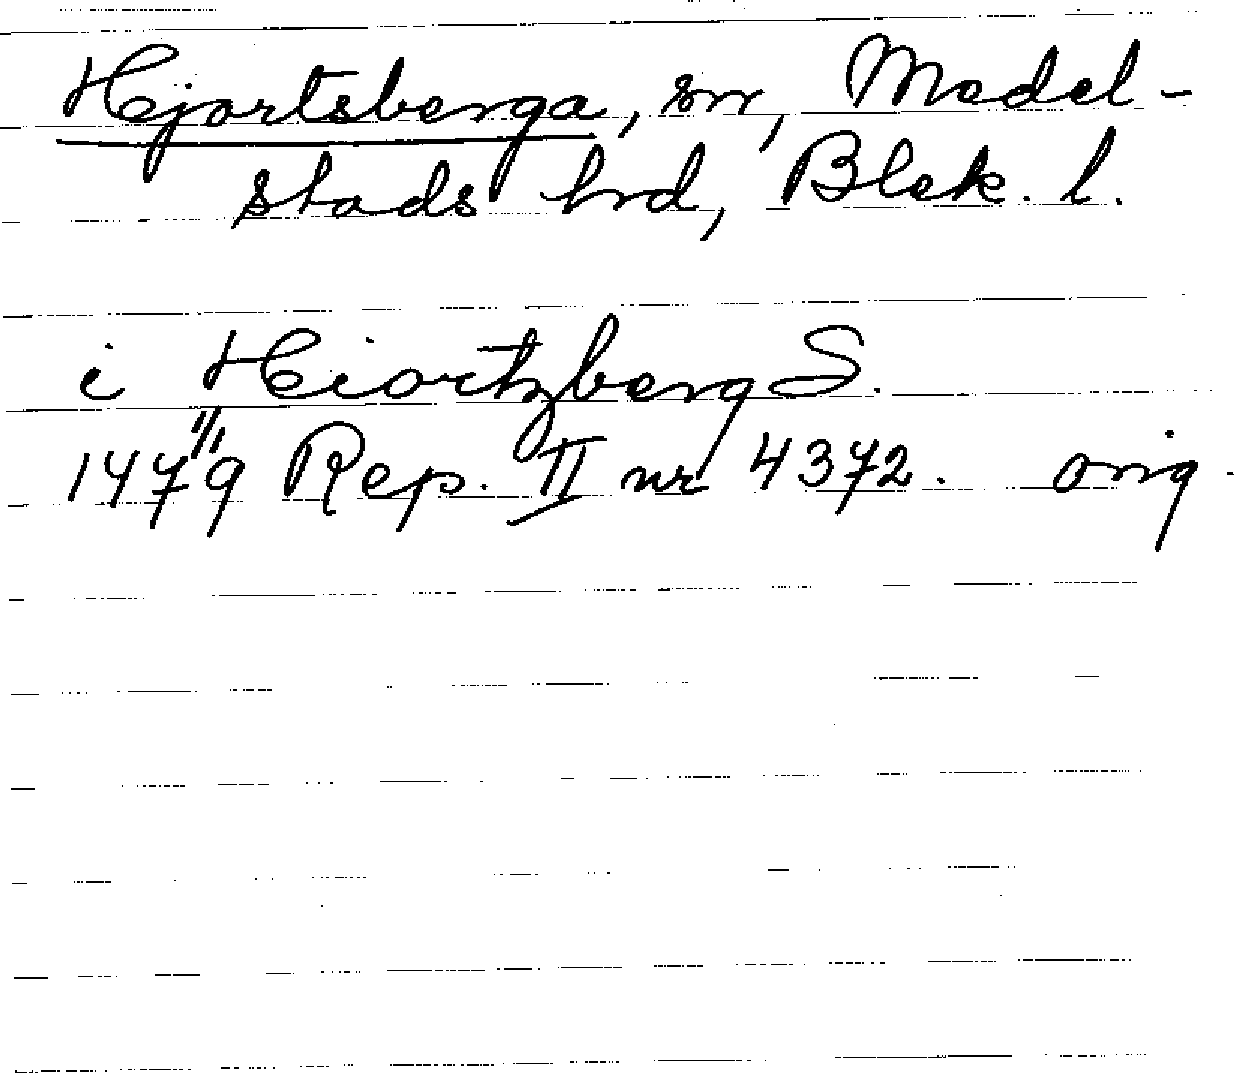 Hjortsberga, sn, Medel-
stads hrd, Blek. l.
i Hiortzberg S.
1479 Rep. II nr 4372. orig.